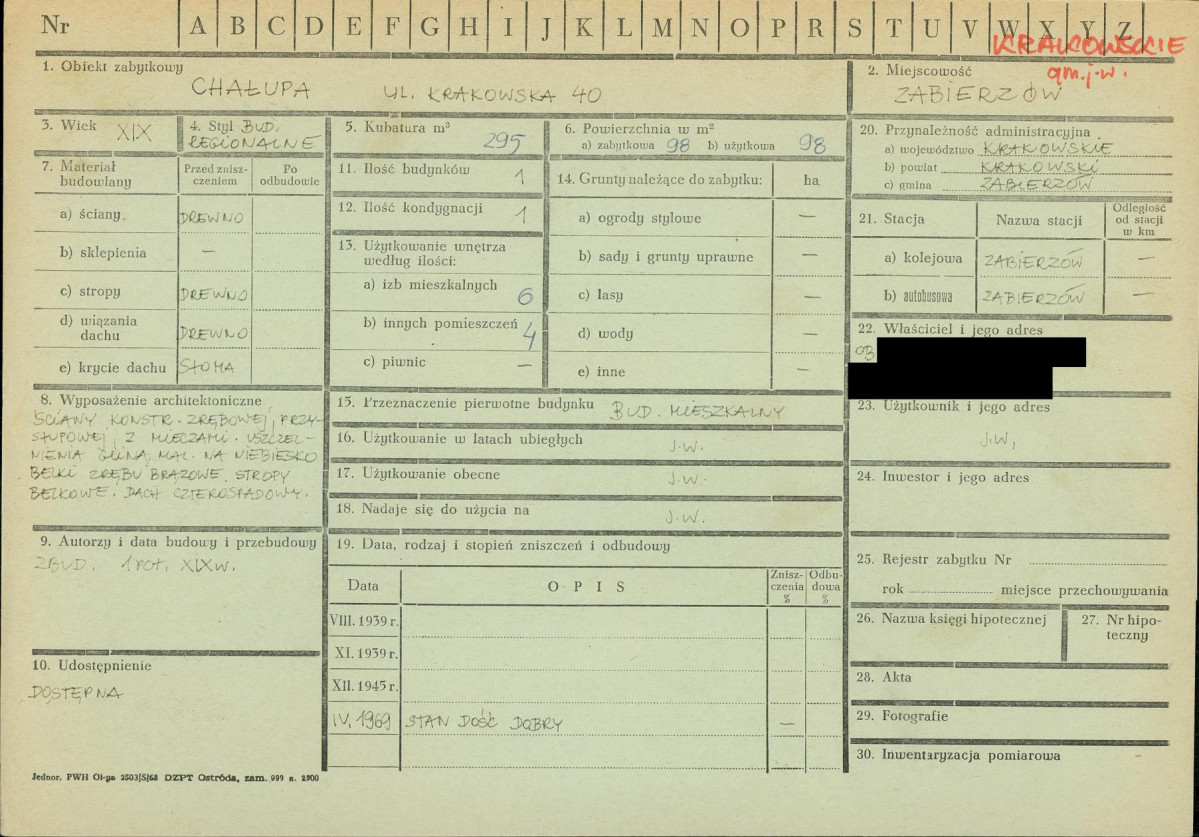 Nr A B C D E F G H I J K L M N O P R S T U V W X Y Z
KRAKOWSKIE
gm. j.w.
1. Obiekt zabytkowy
CHAŁUPA UL. KRAKOWSKA 40
2. Miejscowość
ZABIERZÓW
3. Wiek XIX
4. Styl BUD.
REGIONALNE
5. Kubatura m³
295
6. Powierzchnia w m²
a) zabytkowa 98 b) użytkowa 98
7. Materiał budowlany
Przed zniszczeniem
Po odbudowie
a) ściany. DREWNO
b) sklepienia —
c) stropy DREWNO
d) wiązania dachu DREWNO
e) krycie dachu SŁOMA
8. Wyposażenie architektoniczne
ŚCIANY KONSTR. ZRĘBOWEJ, PRZY-
SŁUPOWEJ, Z MIECZAMI. USZCZEL-
NIENIA GLINĄ, MAL. NA NIEBIESKO
BELKI ZRĘBU BRĄZOWE, STROPY
BELKOWE. DACH CZTEROSPADOWY.
9. Autorzy i data budowy i przebudowy
ZBUD. 1 POŁ. XIX W.
10. Udostępnienie
DOSTĘPNA
11. Ilość budynków 1
12. Ilość kondygnacji 1
13. Użytkowanie wnętrza
według ilości:
a) izb mieszkalnych 6
b) innych pomieszczeń 4
c) piwnic —
14. Grunty należące do zabytku: ha
a) ogrody stylowe —
b) sady i grunty uprawne —
c) lasy —
d) wody —
e) inne —
15. Przeznaczenie pierwotne budynku BUD. MIESZKALNY
16. Użytkowanie w latach ubiegłych J.W.
17. Użytkowanie obecne J.W.
18. Nadaje się do użycia na J.W.
19. Data, rodzaj i stopień zniszczeń i odbudowy
Data OPIS Zniszczenia % Odbudowa %
VIII. 1939 r.
XI. 1939 r.
XII. 1945 r.
IV. 1969 STAN DOŚĆ DOBRY —
20. Przynależność administracyjna
a) województwo KRAKOWSKIE
b) powiat KRAKOWSKI
c) gmina ZABIERZÓW
21. Stacja Nazwa stacji Odległość od stacji w km
a) kolejowa ZABIERZÓW —
b) autobusowa ZABIERZÓW —
22. Właściciel i jego adres
OB
23. Użytkownik i jego adres
J.W.
24. Inwestor i jego adres
25. Rejestr zabytku Nr
rok miejsce przechowywania
26. Nazwa księgi hipotecznej
27. Nr hipoteczny
28. Akta
29. Fotografie
30. Inwentaryzacja pomiarowa
Jednor. PWH Ol-yn 2503/S/68 DZPT Ostróda, zam. 999 n. 2500